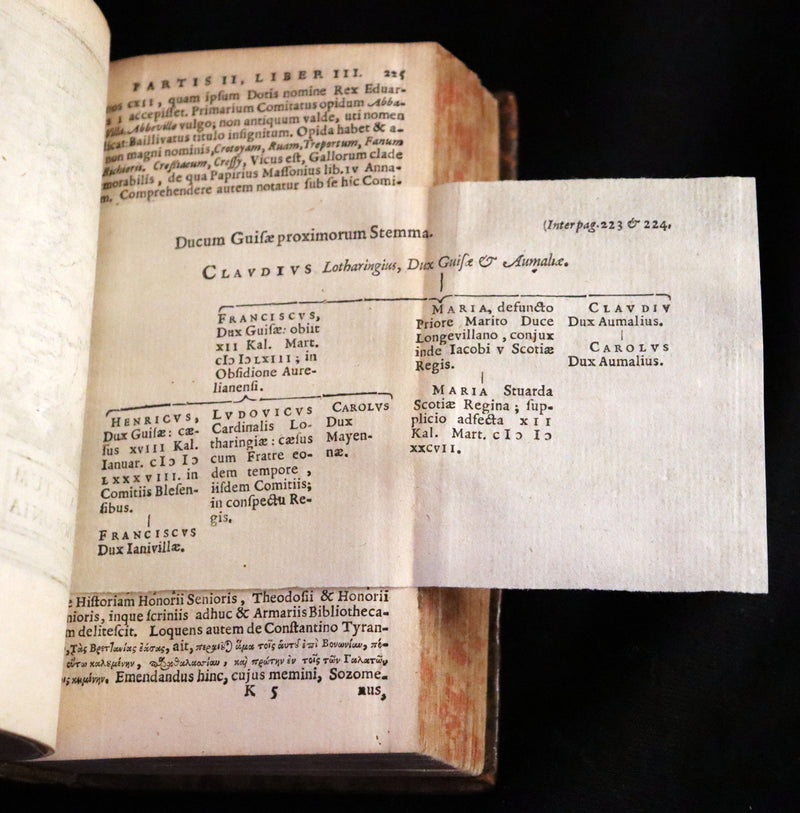 PARTIS II, LIBER III. 225
nos CXII, quam ipſum Dotis nomine Rex Eduar-
s I accepiſſet. Primarium Comitatus opidum Abba-
villa, Abbeville vulgo; non antiquum valde, uti nomen
licat: Bailliivatus titulo inſignitum. Opida habet & a-
non magni nominis, Crotoyam, Ruam, Treportum, Fanum
Richerii. Creſſiacum, Creſſy, Vicus eſt, Gallorum clade
morabilis, de qua Papirius Maſſonius lib. IV Anna-
m. Comprehendere autem notatur ſub ſe hic Comi-
(Inter pag. 223 & 224,
Ducum Guiſæ proximorum Stemma.
CLAVDIVS Lotharingius, Dux Guiſæ & Aumaliæ.
FRANCISCVS,
Dux Guiſæ: obiit
XII Kal. Mart.
cIↃ IↃLXIII; in
Obſidione Aure-
lianenſi.
HENRICVS,
Dux Guiſæ: cæ-
ſus XVIII Kal.
Ianuar. cIↃ IↃ
LXXXVIII. in
Comitiis Bleſen-
ſibus.
FRANCISCVS
Dux Ianivillæ.
LVDOVICVS
Cardinalis Lo-
tharingiæ: cæſus
cum Fratre eo-
dem tempore,
iiſdem Comitiis;
in conſpectu Re-
gis.
CAROLVS
Dux
Mayen-
næ.
MARIA, defuncto
Priore Marito Duce
Longevillano, conjux
inde Iacobi V Scotiæ
Regis.
MARIA Stuarda
Scotiæ Regina; ſup-
plicio adfecta XII
Kal. Mart. cIↃ IↃ
XXCVII.
CLAVDIV
Dux Aumalius.
CAROLVS
Dux Aumalius.
e Hiſtoriam Honorii Senioris, Theodoſii & Honorii
nioris, inque ſcriniis adhuc & Armariis Bibliotheca-
m deliteſcit. Loquens autem de Conſtantino Tyran-
Τὰς Βρετανίας ἐάσας, ait, ἅμα τοῖς αὐτοῦ ἐπὶ Βονωνίαν, πό-
οὕτω καλουμένην, καὶ πρώτην ἐν τοῖς τῶν Γαλατῶν
κειμένην. Emendandus hinc, cujus memini, Sozome-
K 5 nus,